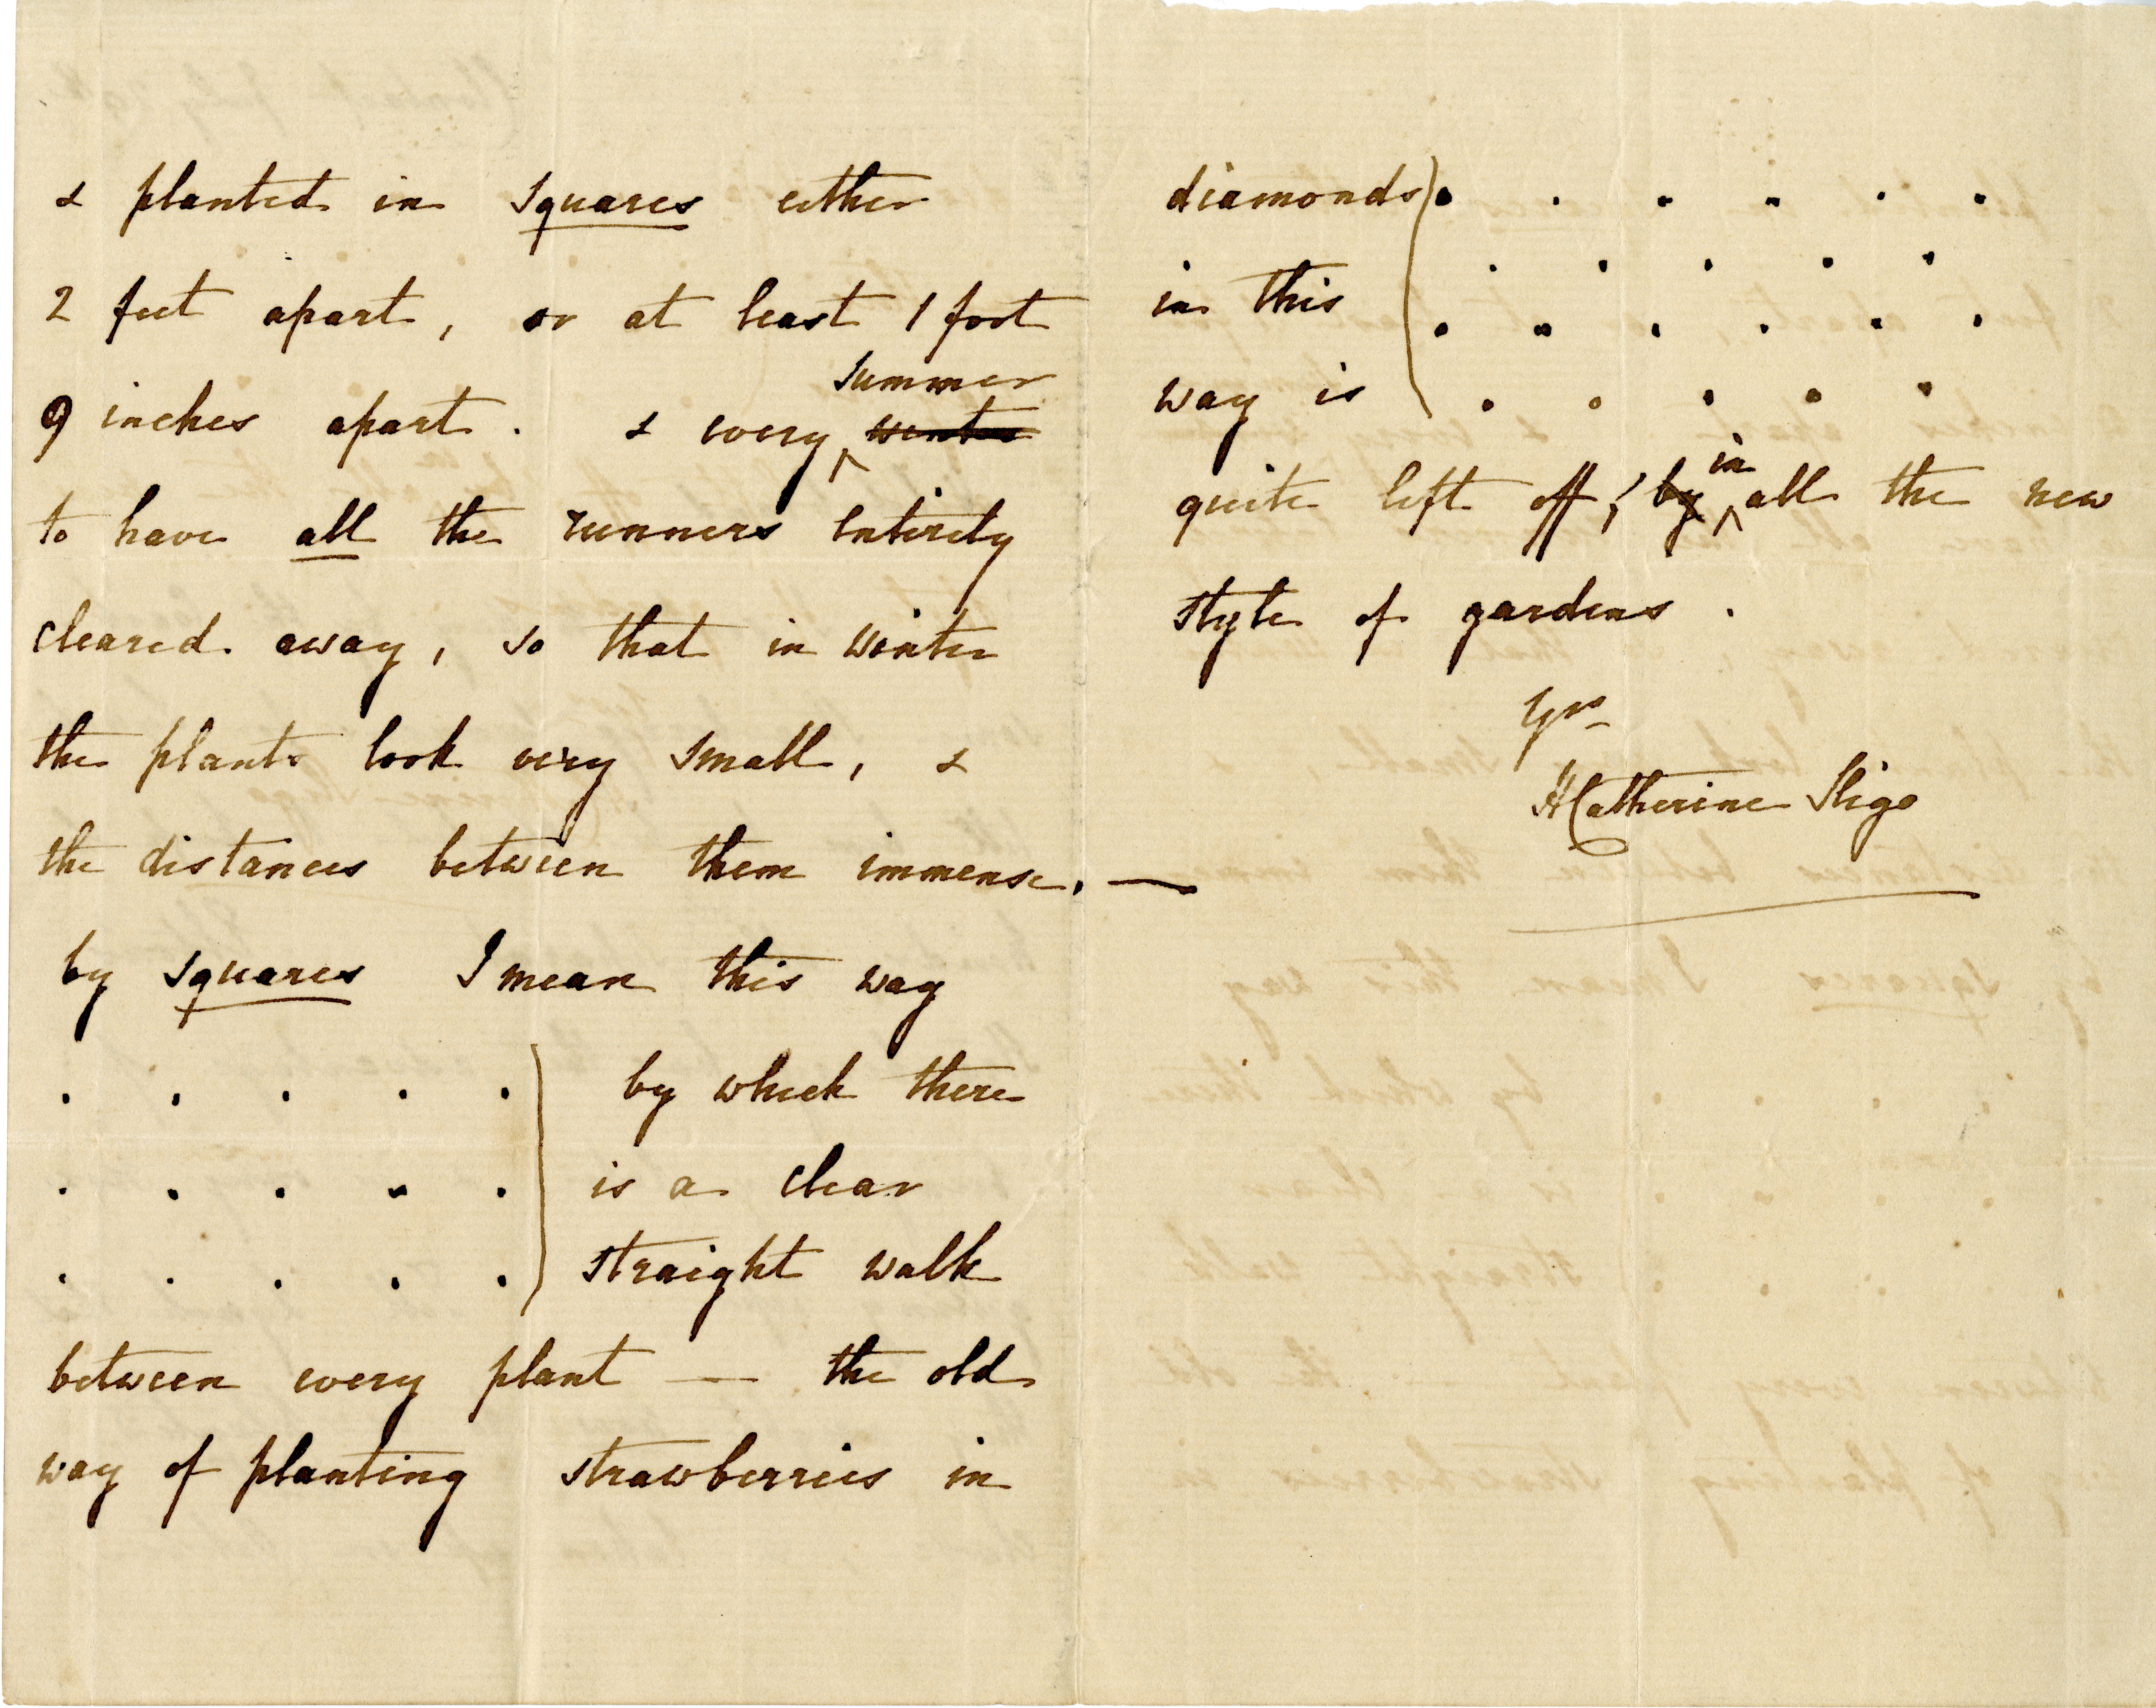 & planted in squares either
2 feet apart, or at least 1 foot
9 inches apart. & every summer winter
to have all the runners entirely
cleared away, so that in winter
the plants look very small, &
the distances between them immense. —
by squares I mean this way
by which there
is a clear
straight walk
between every plant — the old
way of planting strawberries in
diamonds
in this
way is
quite left off, by in all the new
style of gardens.
Yrs
HCatherine Sligo